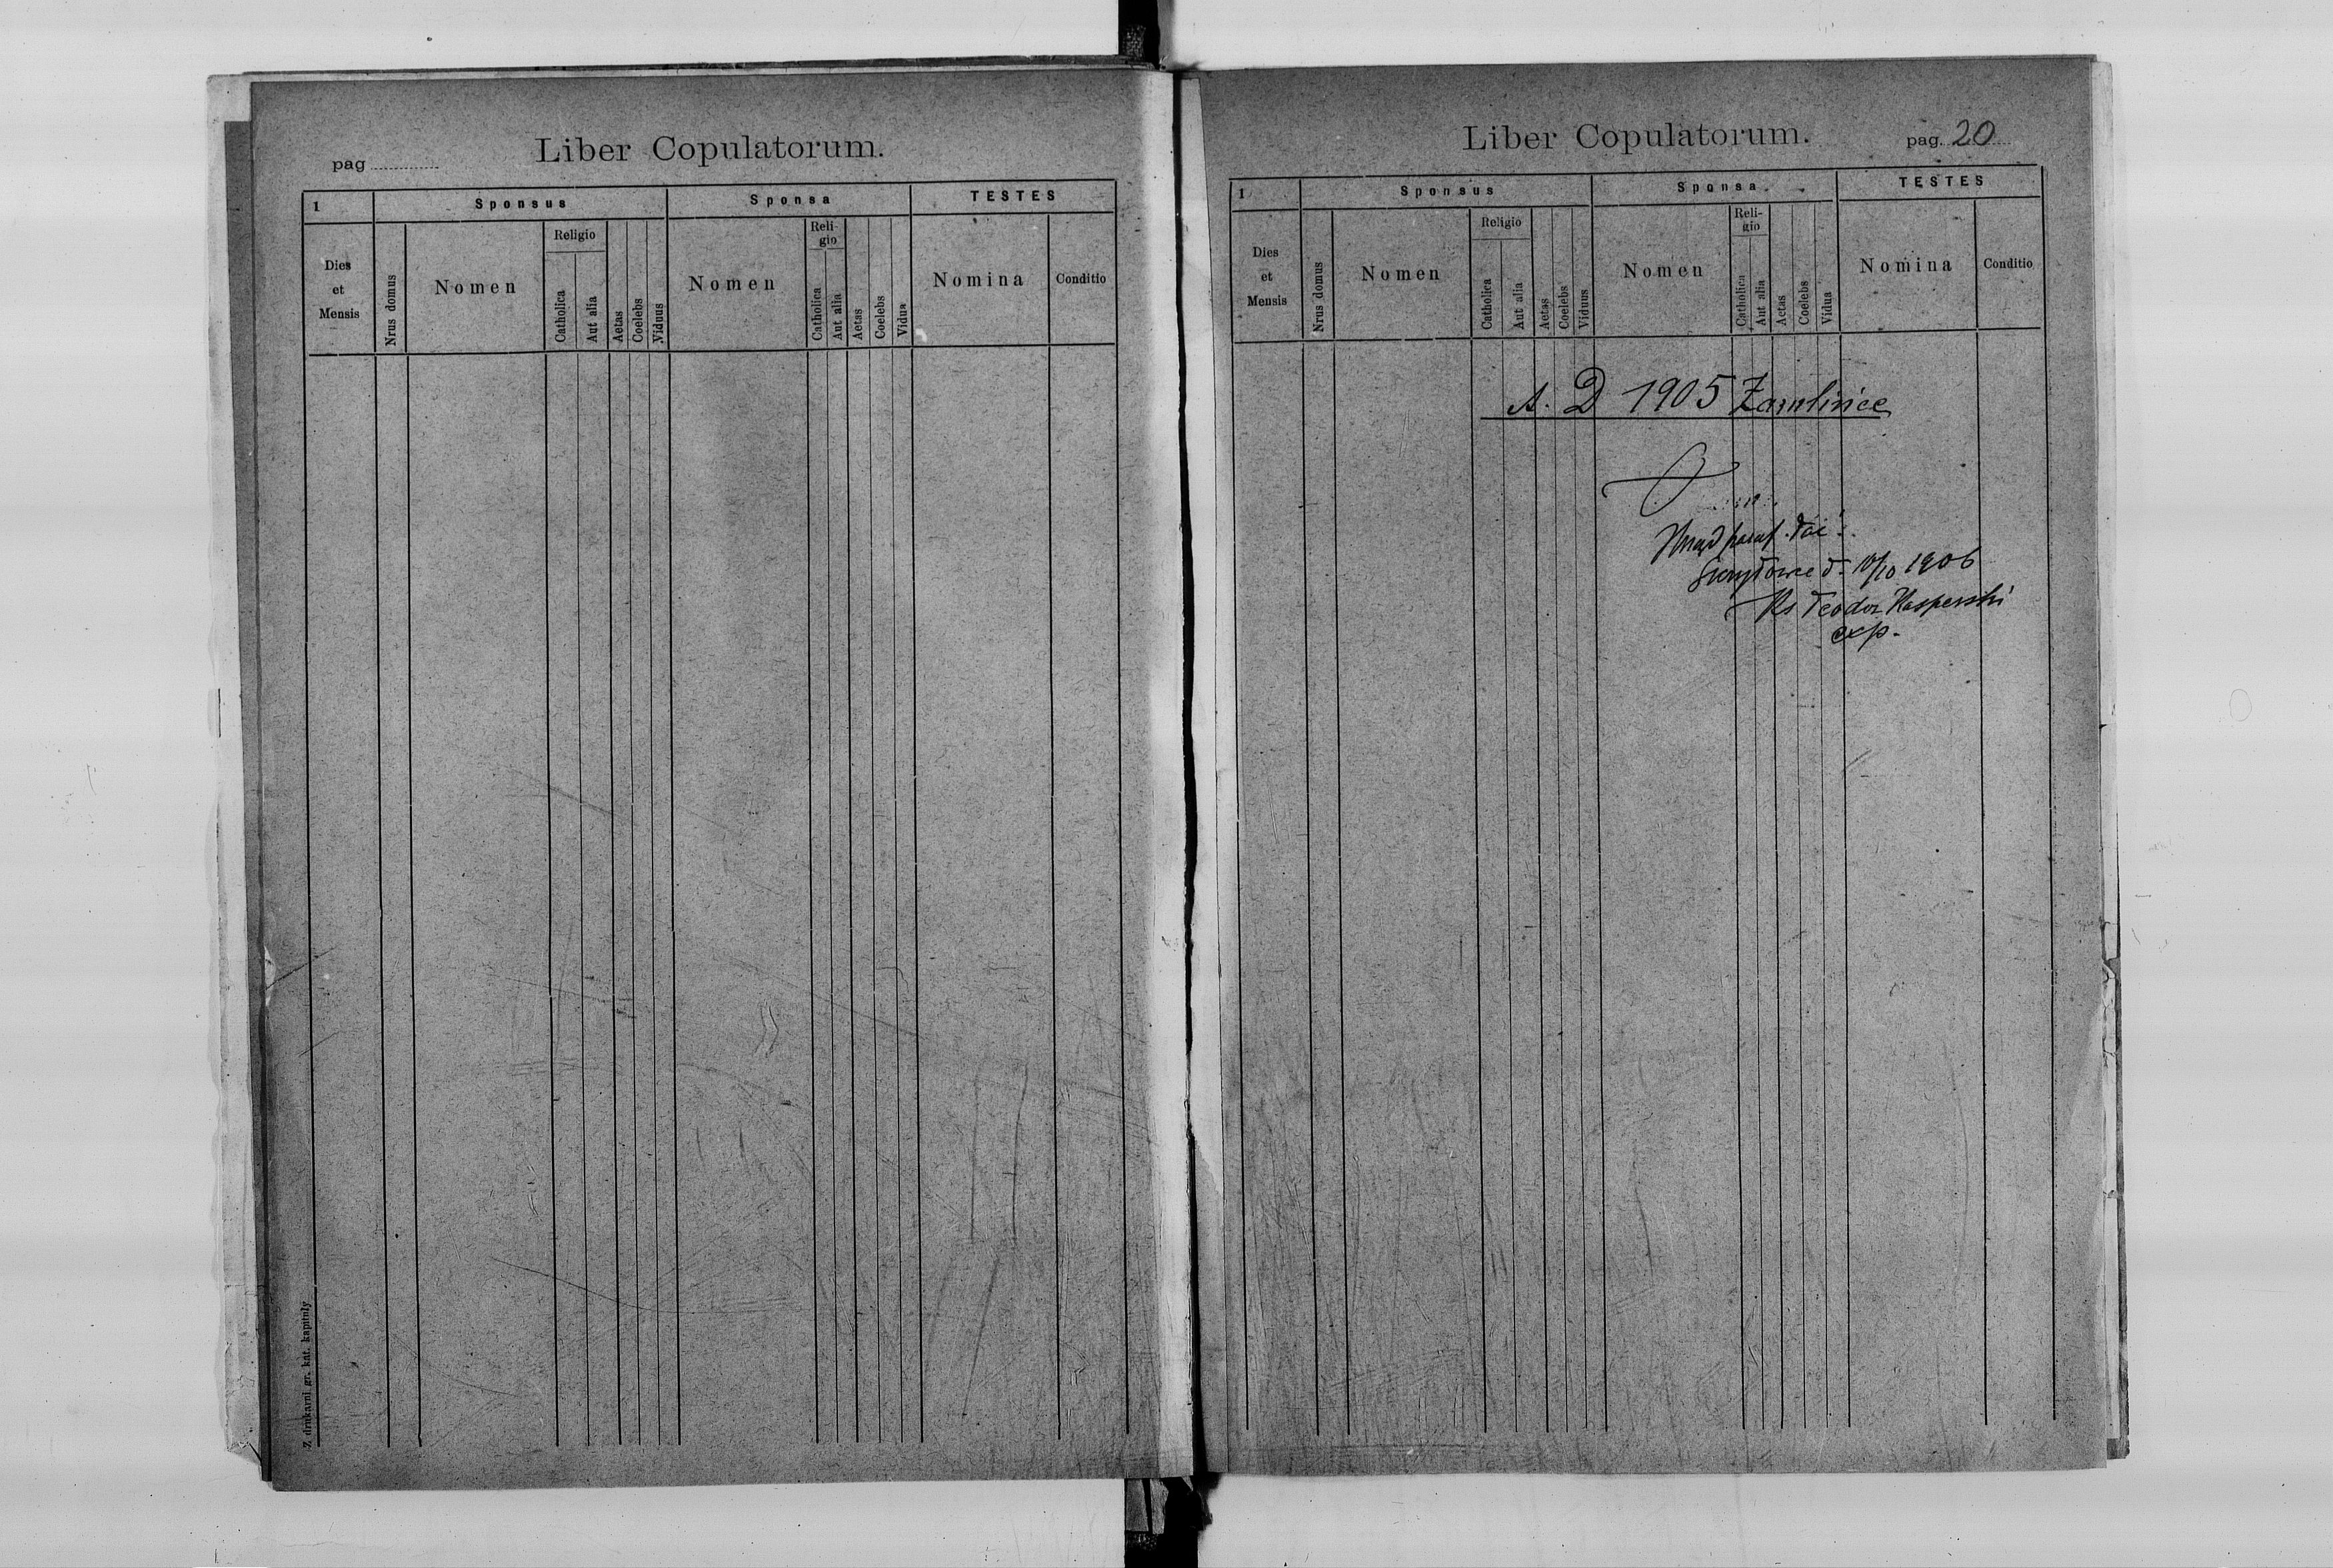 pag
Liber Copulatorum.
1
Sponsus
Sponsa
TESTES
Dies
et
Mensis
Nrus domus
Nomen
Religio
Catholica
Aut alia
Aetas
Coelebs
Viduus
Nomen
Reli-
gio
Catholica
Aut alia
Aetas
Coelebs
Vidua
Nomina
Conditio
Z drukarni gr. kat. kapituly
Liber Copulatorum.
pag. 20
1
Sponsus
Sponsa
TESTES
Dies
et
Mensis
Nrus domus
Nomen
Religio
Catholica
Aut alia
Aetas
Coelebs
Viduus
Nomen
Reli-
gio
Catholica
Aut alia
Aetas
Coelebs
Vidua
Nomina
Conditio
A. D 1905 Zamlińce
Urząd paraf. łac.
d. 10/10 1906
Ks Teodor Kasperski
exp.